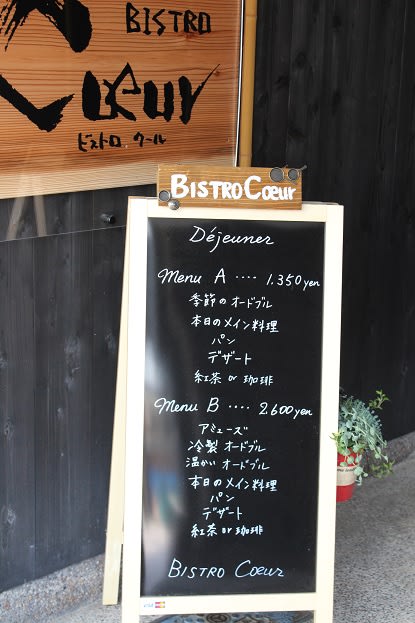 BISTRO
Cœur
ビストロ クール
BISTRO Cœur
Déjeuner
Menu A ···· 1.350 yen
季節のオードブル
本日のメイン料理
パン
デザート
紅茶 or 珈琲
Menu B ···· 2.600 yen
アミューズ
冷製 オードブル
温かい オードブル
本日のメイン料理
パン
デザート
紅茶 or 珈琲
BISTRO Cœur